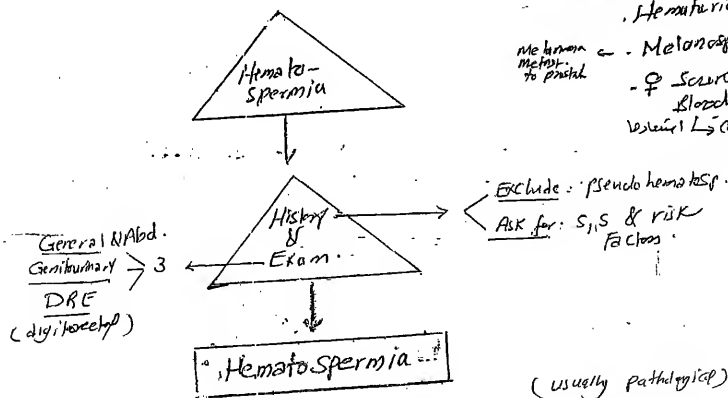 . Hematuria
Hemato-
Spermia
melanoma
metast.
to prostat
. Melanosp
- ♀ Source
Blood
History
&
Exam.
Exclude : Pseudo hematosp.
Ask for : S,S & risk
Factors.
General & Abd.
Genitourinary
DRE
(digitorectal)
3
Hemato Spermia
(usually pathological)